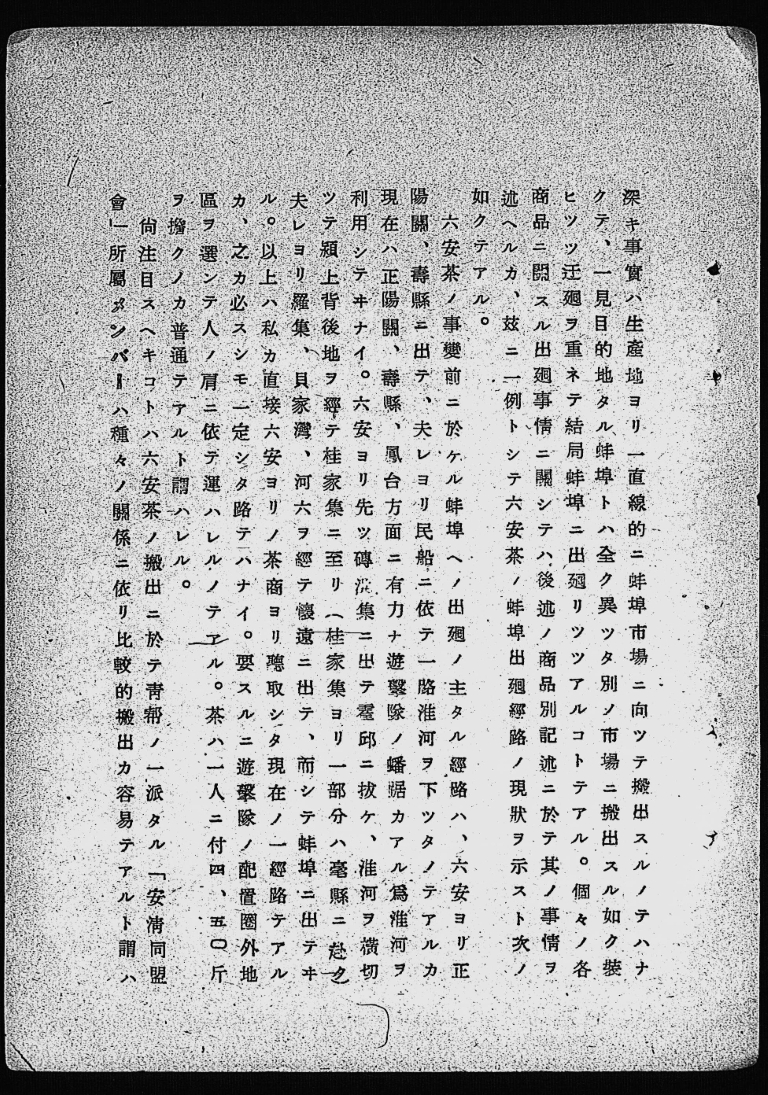 深キ事實ハ生產地ヨリ一直線的ニ蚌埠市場ニ向ツテ搬出スルノテハナ
クテ、一見目的地タル蚌埠トハ全ク異ツタ別ノ市場ニ搬出スル如ク裝
ヒツツ迂廻ヲ重ネテ結局蚌埠ニ出廻リツツアルコトテアル。個々ノ各
商品ニ關スル出廻事情ニ關シテハ後述ノ商品別記述ニ於テ其ノ事情ヲ
述ヘルカ、玆ニ一例トシテ六安茶ノ蚌埠出廻經路ノ現狀ヲ示スト次ノ
如クテアル。
六安茶ノ事變前ニ於ケル蚌埠ヘノ出廻ノ主タル經路ハ、六安ヨリ正
陽關、壽縣ニ出テ、夫レヨリ民船ニ依テ一路淮河ヲ下ツタノテアルカ
現在ハ正陽關、壽縣、鳳台方面ニ有力ナ遊擊隊ノ蟠踞カアル爲淮河ヲ
利用シテヰナイ。六安ヨリ先ツ磚集ニ出テ霍邱ニ拔ケ、淮河ヲ橫切
ツテ潁上背後地ヲ經テ桂家集ニ至リ（桂家集ヨリ一部分ハ亳縣ニ赴ク
夫レヨリ羅集、貝家灣、河六ヲ經テ懷遠ニ出テ、而シテ蚌埠ニ出テヰ
ル。以上ハ私カ直接六安ヨリノ茶商ヨリ聽取シタ現在ノ一經路テアル
カ、之カ必スシモ一定シタ路テハナイ。要スルニ遊擊隊ノ配置圈外地
區ヲ選ンテ人ノ肩ニ依テ運ハレルノテアル。茶ハ一人ニ付四、五〇斤
ヲ擔クノカ普通テアルト謂ハレル。
尙注目スヘキコトハ六安茶ノ搬出ニ於テ靑幇ノ一派タル「安淸同盟
會」所屬メンバーハ種々ノ關係ニ依リ比較的搬出カ容易テアルト謂ハ